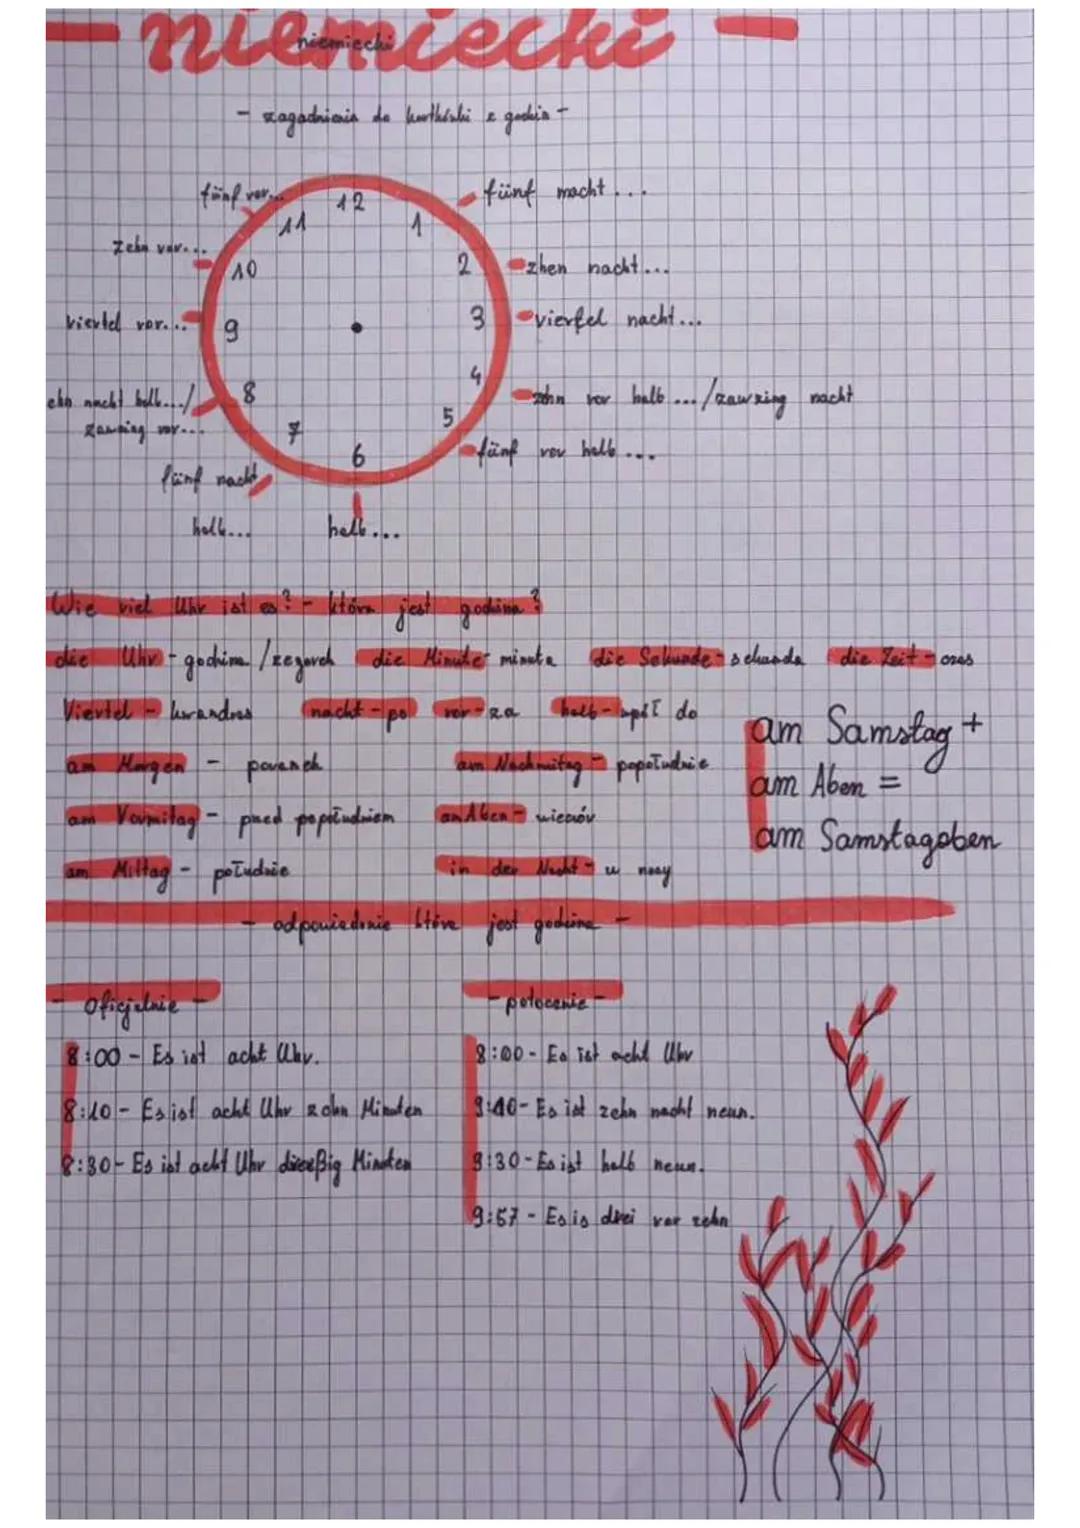 - niemiecki -
niemiecki
- zagadnienia do kartkówki z godzin -
fünf vor...
12
fünf macht ...
11
1
zehn vor...
10
2
zhen nacht...
viertel vor...
9
3
vierfel nacht...
8
4
nacht halb.../
zehn vor halb ... /zawzing nacht
vor...
7
5
6
fünf vor halb ...
fünf nacht
halb...
halb...
Wie viel Uhr ist es? - która jest godzina?
die Uhr - godzina /zegarek die Minute - minuta die Sekunde - sekunda die Zeit - czas
Viertel - kwandras nacht - po vor - za halb - wpół do
am Samstag +
am Morgen - poranek am Nachmitag - popołudnie
am Aben =
am Vormitag - pned popołudniem am Aben - wieczór
am Samstagaben
am Mittag - południe in der Nacht - w nocy
- odpowiednie która jest godzina -
- Oficjalnie -
- potocznie -
8:00 - Es ist acht Uhr.
8:00 - Es ist acht Uhr
8:10 - Es ist acht Uhr zehn Minuten
9:10 - Es ist zehn nacht neun.
8:30 - Es ist acht Uhr dreißig Minuten
9:30 - Es ist halb neun.
9:57 - Es is drei vor zehn